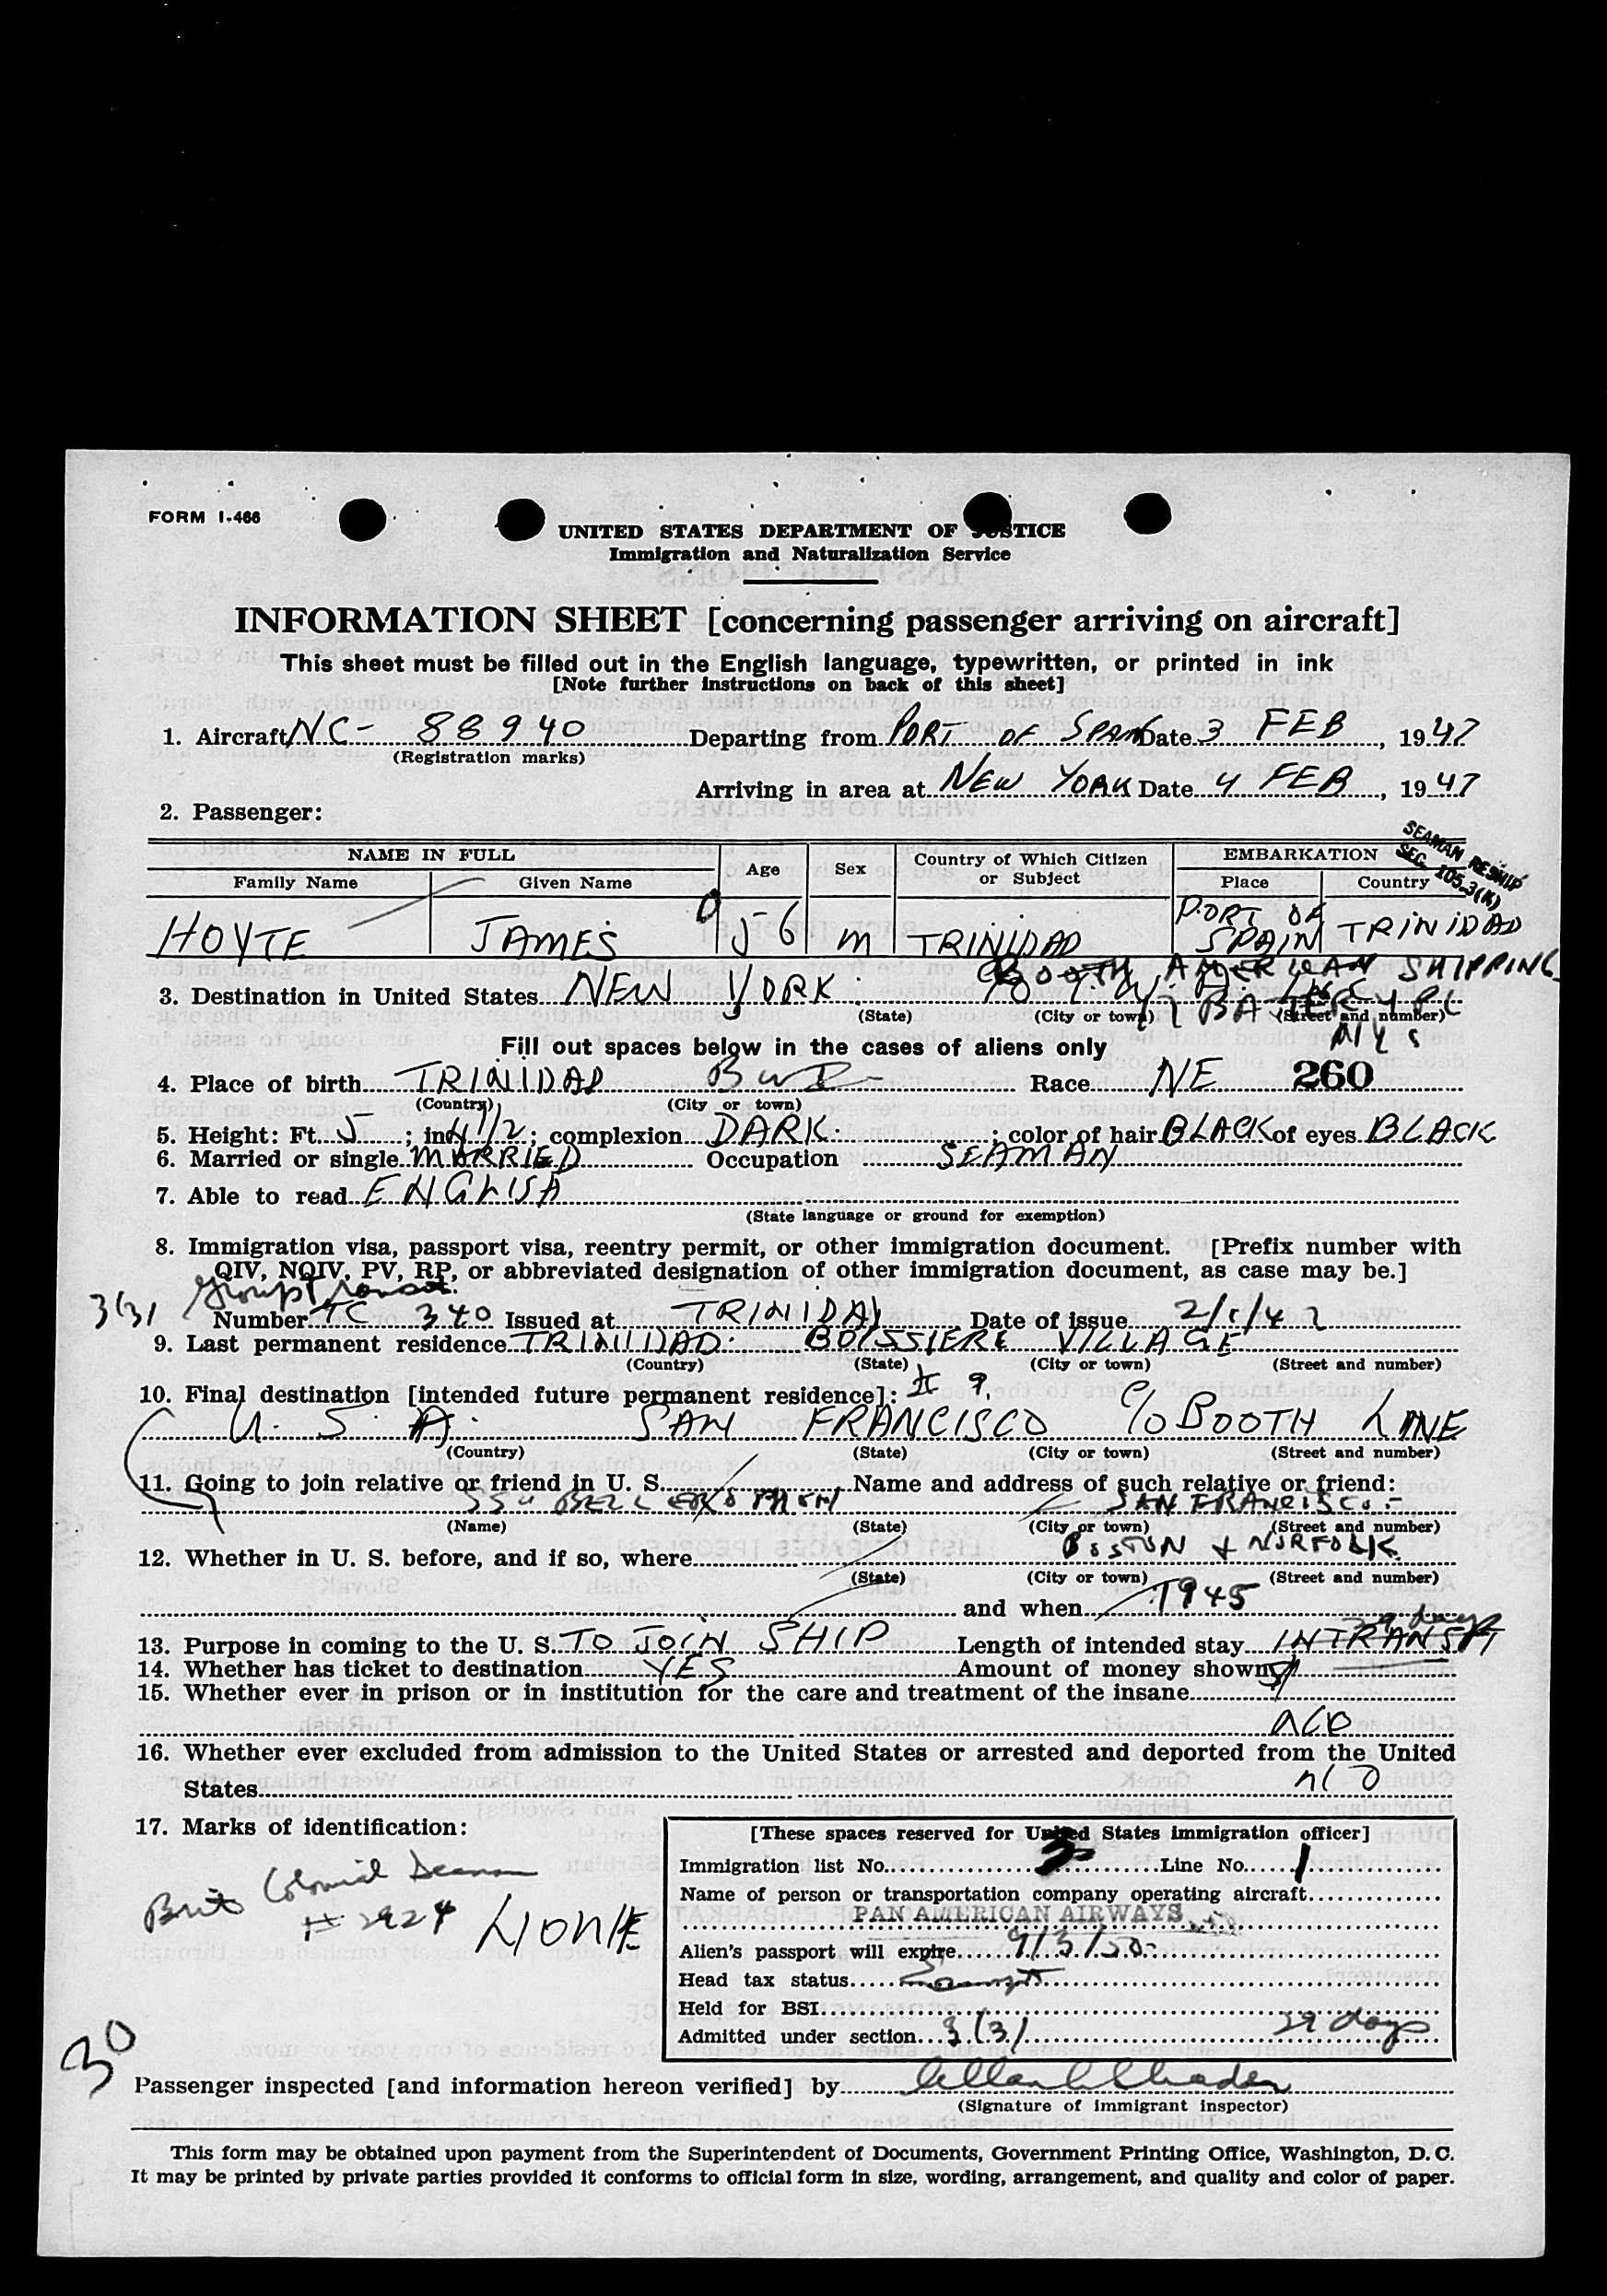 FORM I-466
UNITED STATES DEPARTMENT OF JUSTICE
Immigration and Naturalization Service
INFORMATION SHEET [concerning passenger arriving on aircraft]
This sheet must be filled out in the English language, typewritten, or printed in ink
[Note further instructions on back of this sheet]
1. Aircraft NC- 88940 Departing from PORT OF SPAIN Date 3 FEB, 1947
(Registration marks)
Arriving in area at NEW YORK Date 4 FEB, 1947
2. Passenger:
SEAMAN RESHIP
SEC. 105.3(K)
NAME IN FULL Age Sex Country of Which Citizen or Subject EMBARKATION
Family Name Given Name Place Country
HOYTE JAMES 56 M TRINIDAD PORT OF SPAIN TRINIDAD
C/O BOOTH AMERICAN SHIPPING
3. Destination in United States NEW YORK 17 BATTERY PL
(State) (City or town) (Street and number)
NYC
Fill out spaces below in the cases of aliens only
4. Place of birth TRINIDAD BWI Race NE 260
(Country) (City or town)
5. Height: Ft. 5; in 4 1/2; complexion DARK; color of hair BLACK of eyes BLACK
6. Married or single MARRIED Occupation SEAMAN
7. Able to read ENGLISH
(State language or ground for exemption)
8. Immigration visa, passport visa, reentry permit, or other immigration document. [Prefix number with
QIV, NQIV, PV, RP, or abbreviated designation of other immigration document, as case may be.]
3(3) Group Transit
Number TC 340 Issued at TRINIDAD Date of issue 2/1/47
9. Last permanent residence TRINIDAD BOISSIERE VILLAGE
(Country) (State) (City or town) (Street and number)
10. Final destination [intended future permanent residece]: # 9.
U. S. A. SAN FRANCISCO C/O BOOTH LINE
(Country) (State) (City or town) (Street and number)
11. Going to join relative or friend in U. S. Name and address of such relative or friend:
SS BELLEROPHON SAN FRANCISCO
(Name) (State) (City or town) (Street and number)
12. Whether in U. S. before, and if so, where BOSTON & NORFOLK
(State) (City or town) (Street and number)
and when 1945
29 days
13. Purpose in coming to the U. S. TO JOIN SHIP Length of intended stay INTRANSIT
14. Whether has ticket to destination YES Amount of money shown
15. Whether ever in prison or in institution for the care and treatment of the insane
NO
16. Whether ever excluded from admission to the United States or arrested and deported from the United
States NO
17. Marks of identification:
Brit Colonial Seaman
# 2924
[These spaces reserved for United States immigration officer]
Immigration list No. 3 Line No. 1
Name of person or transportation company operating aircraft
PAN AMERICAN AIRWAYS
Alien's passport will expire 9/3/50
Head tax status Exempt
Held for BSI
Admitted under section 3(3) 29 days
30
Passenger inspected [and information hereon verified] by
(Signature of immigrant inspector)
This form may be obtained upon payment from the Superintendent of Documents, Government Printing Office, Washington, D. C.
It may be printed by private parties provided it conforms to official form in size, wording, arrangement, and quality and color of paper.